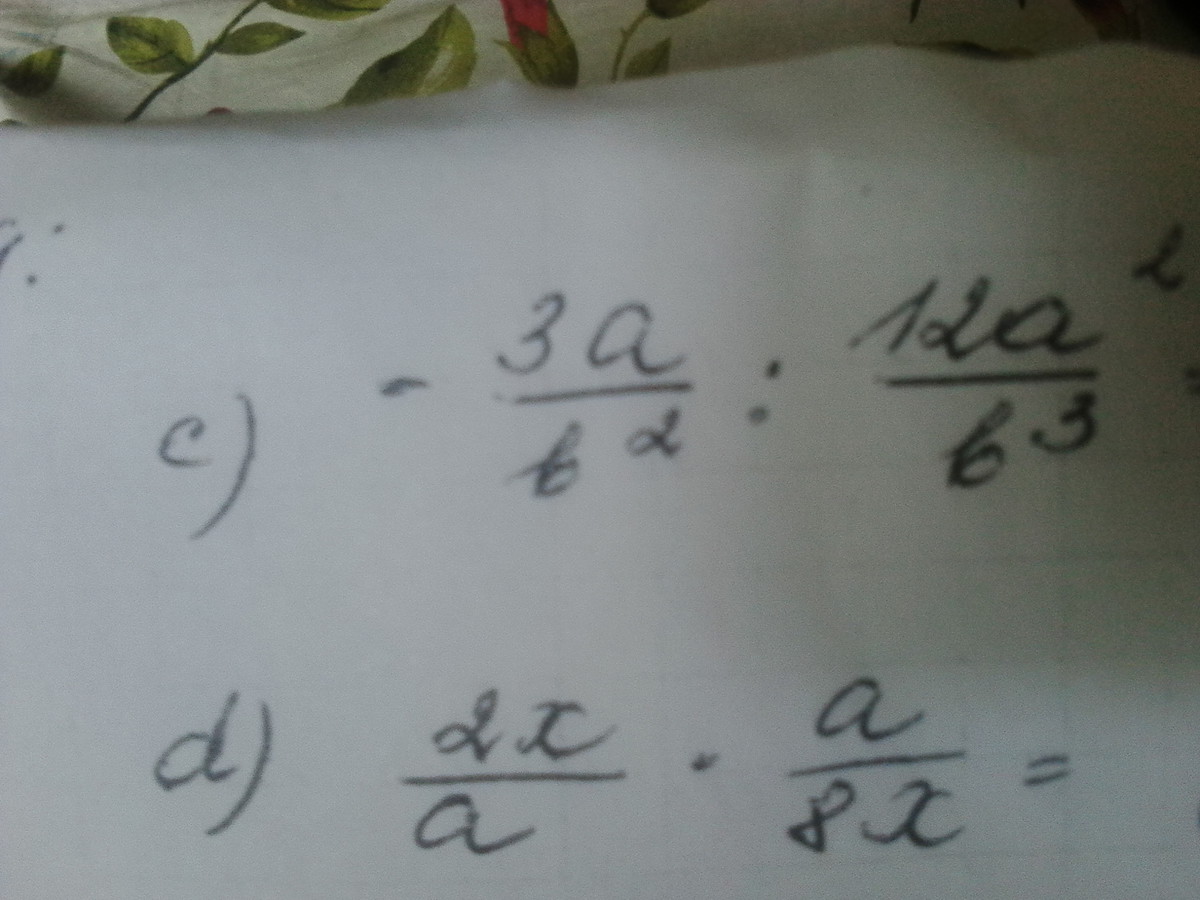 c) - 3a/b² : 12a²/b³ =
d) 2x/a · a/8x =